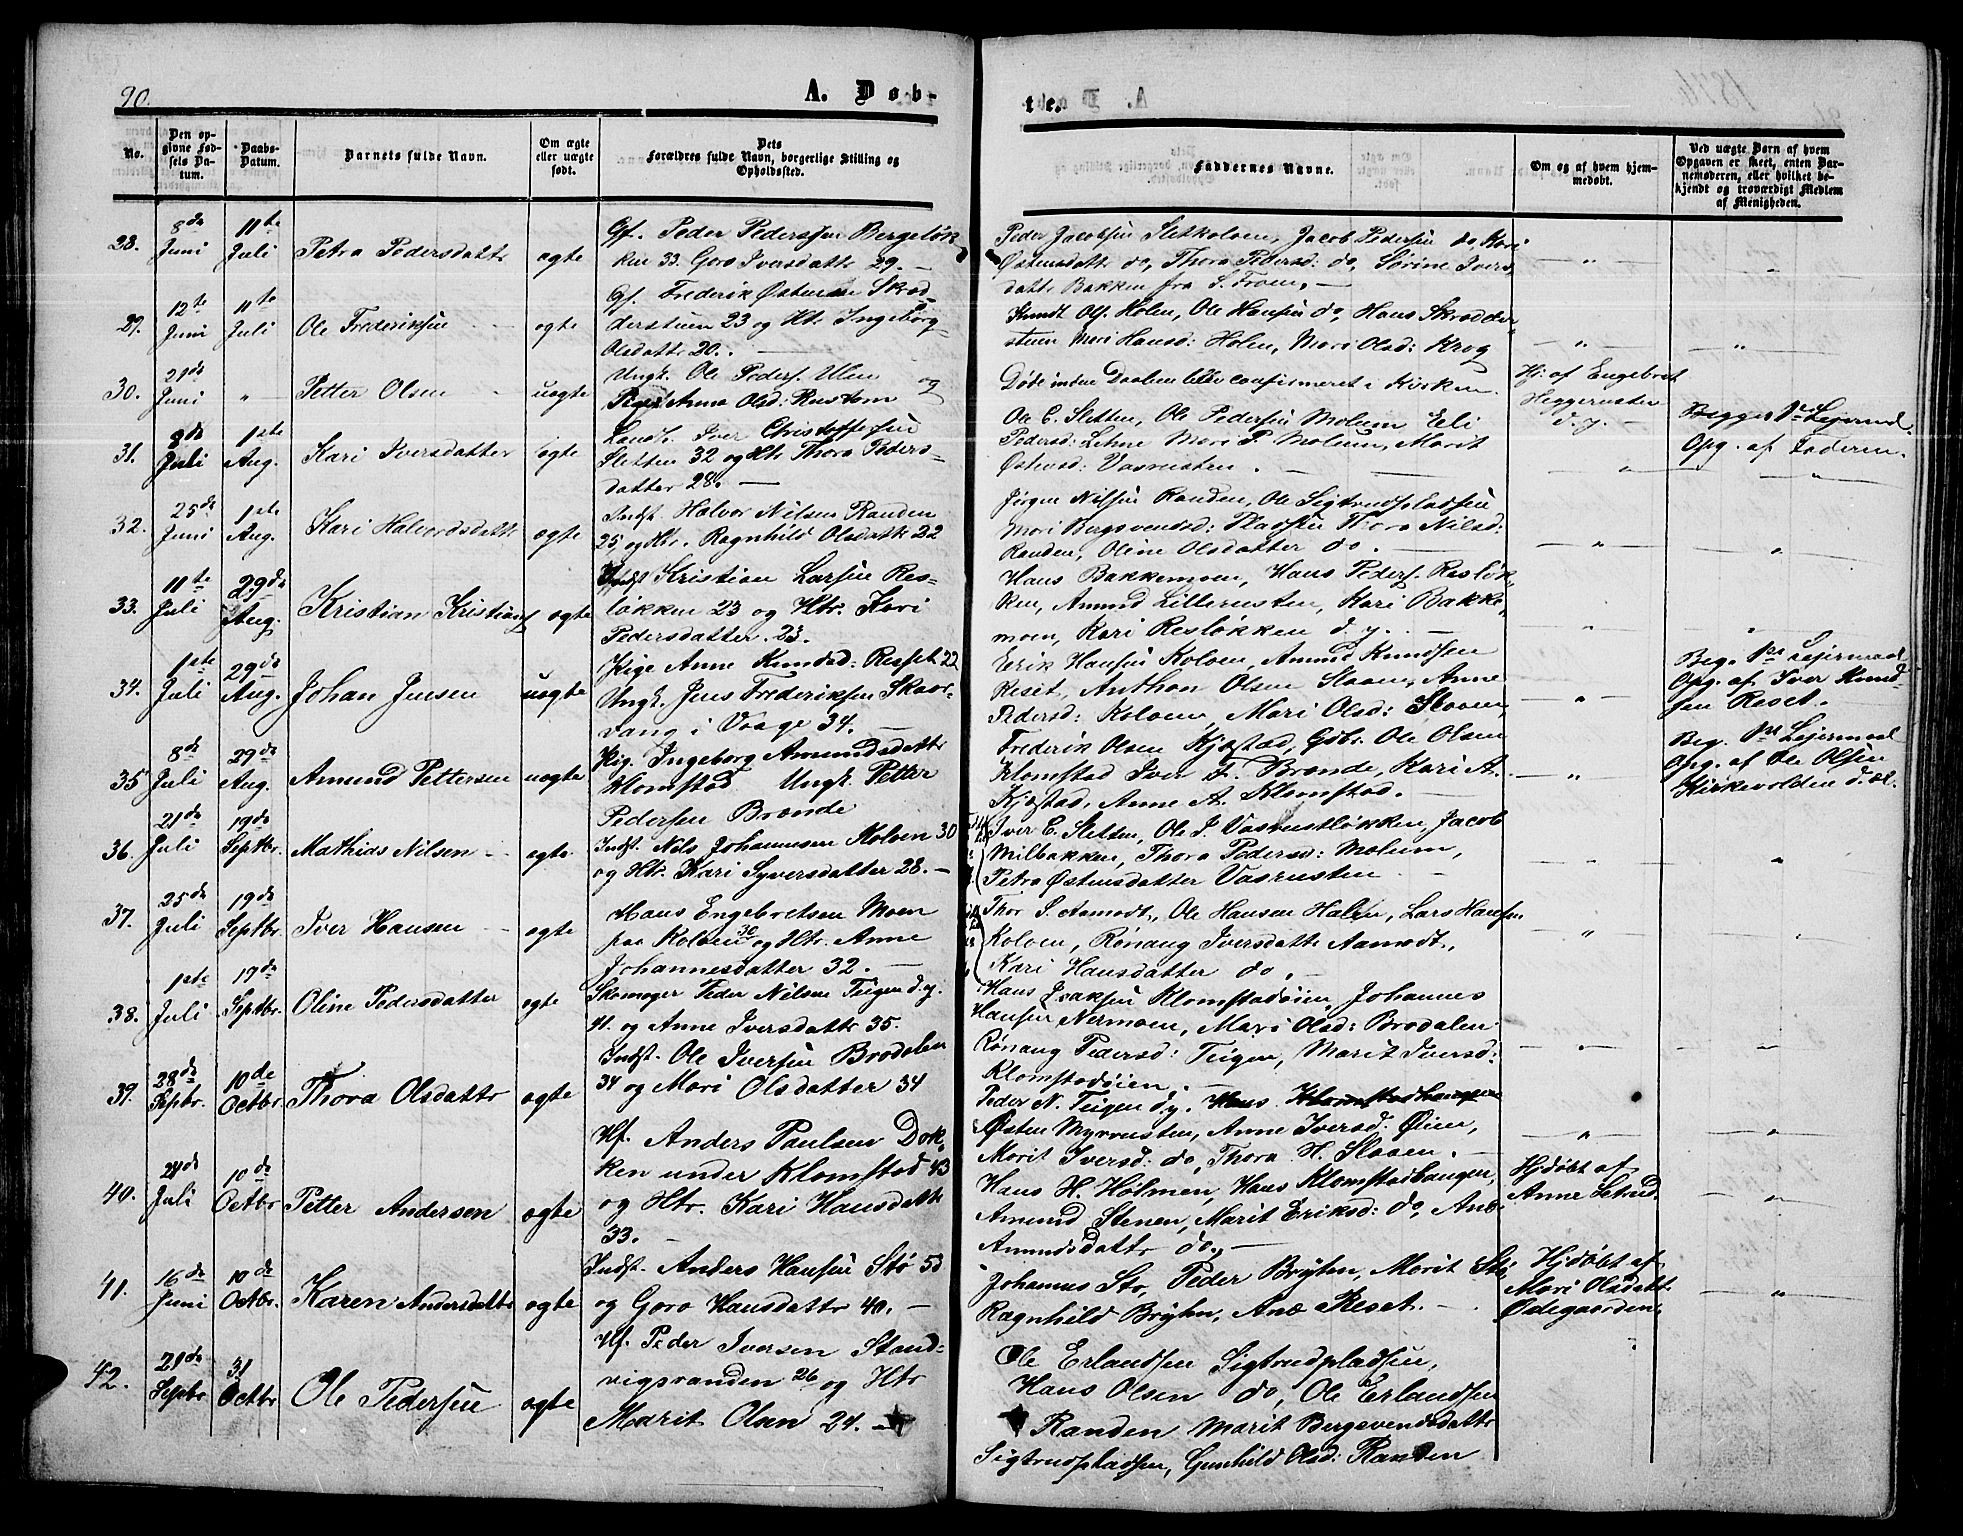 90.
A. Døb-
te.
No.
Den op-
givne Fød-
sels Da-
tum.
Daabs-
Datum.
Barnets fulde Navn.
Om ægte
eller uægte
født.
Dets
Forældres fulde Navn, borgerlige Stilling og
Opholdssted.
Faddernes Navne.
Om og af hvem hjem-
medøbt.
Ved uægte Børn af hvem
Opgaven er skeet, enten Bar-
nemoderen, eller hvilket be-
kjendt og troværdigt Medlem
af Menigheden.
28.
8de
Juni
11te
Juli
Petra Pedersdattr
ægte
Gf. Peder Pedersen Bergeløk
ken 33. Goro Iversdattr 29. —
Peder Jacobsen Sletkolven, Jacob Pedersen do, Kari
Østensdattr do, Thora Pedersd: do, Sørine Ivers
dattr Bakken fra S. Fron. —
— " —
"
29.
12te
Juni
11te
Juli
Ole Frederiksen
ægte
Gf. Frederik Østensen Skræd-
derstuen 23 og Htr Ingeborg
Olsdattr 20. —
Knudt Ols. Holen, Ole Hansen do, Hans Skrædder
stuen Mari Hansd: Holen, Mari Olsd: Krog
— " —
"
30.
21de
Juni
"
Petter Olsen
uægte
Ungk. Ole Peders. Ulen og
Pige Anna Olsd: Rustom
Døde inden Daaben blev confirmeret i Kirken
Hj: af Engebret
Heggerusten
d. y. —
Begges 1te Leiermaal.
Opg. af Faderen.
31.
8de
Juli
1ste
Aug.
Kari Iversdatter
ægte
Landh. Iver Christoffersen
Sletten 32 og Htr Thora Peders-
datter 28. —
Ole C. Sletten, Ole Pedersen Molum Eli
Pedersd: Lehne Mari P. Molum, Marit
Østensd: Vasrusten. —
"
"
32.
25de
Juni
1ste
Aug.
Kari Halvordsdattr
ægte
Indst. Halvor Nilsen Randen
25, og Htr. Ragnhild Olsdattr 22
Jørgen Nilsen Randen, Ole Sigtrudspladsen
Mari Bergsvendsd: Pladsen Thora Nilsd:
Randen, Oline Olsdatter do. —
— " —
"
33.
11te
Juli
29de
Aug.
Kristian Kristians
ægte
Indst Kristian Larsen Res-
løkken 23 og Htr. Kari
Pedersdatter. 23.
Hans Bakkemoen, Hans Peders. Resløk
ken, Amund Lillerusten, Kari Bakke-
moen, Kari Resløkken d. y. —
— " —
"
34.
1ste
Juli
29de
Aug.
Johan Jensen
uægte
Pige Anne Knudsd: Resset 22
Ungk. Jens Frederiksen Skaar-
vang i Vaage 34. —
Erik Hansen Kolven, Amund Knudsen
Reset, Anthon Olsen Slaaen, Anne
Pedersd: Kolven, Mari Olsd: Slaaen,
— " —
Beg. 1te Leiermaal
Opg. af Iver Knud-
sen Reset.
35
8de
Juli
29de
Aug.
Amund Pettersen
uægte
Pig. Ingeborg Amundsdattr
Klomstad Ungk. Petter
Pedersen Brænde
Frederik Olsen Kjæstad, Gbr. Ole Olsen
Klomstad Iver F. Brænde, Kari A.
Kjæstad, Anne A. Klomstad. —
— " —
Beg. 1te Leiermaal
Opg. af Ole Olsen
Kirkevolden d. æl.
36.
21de
Juli
19de
Septbr.
Mathias Nilsen
ægte
Indst. Nils Johannesen Kolven 30
og Htr. Kari Syversdatter 28. —
Iver C. Sletten, Ole I. Vasrustløkken, Jacob
Milbakken, Thora Pedersd: Molum,
Petra Østensdatter Vasrusten —
— " —
"
37.
25de
Juli
19de
Septbr.
Iver Hansen
ægte
Hans Engebretsen Moen
paa Kolven 30 og Htr. Anne
Johannesdatter 32. —
Thor S. Aamodt, Ole Hansen Halen, Lars Hansen
Kolven, Rønaug Iversdattr Aamodt,
Kari Hansdatter do. —
— " —
38.
1ste
Juli
19de
Septbr.
Oline Pedersdatter
ægte
Skomager Peder Nilsen Teigen d. y.
41. og Anne Iversdattr 35.
Hans Isaksen Klomstadøien, Johannes
Hansen Nermoen, Mari Olsd: Brodalen
Rønaug Pedersd: Teigen, Marit Iversd:
Klomstadøien. —
— " —
— " —
39.
28de
Septbr.
10de
Octbr.
Thora Olsdattr
ægte
Indst. Ole Iversen Brodalen
34 og Mari Olsdatter 34
Peder N. Teigen d. y. Hans Klomstadhaugen
Østen Myrrusten, Anne Iversd. Øien,
Marit Iversd: do, Thora H. Slaaen. —
— " —
"
40.
24de
Juli
10de
Octbr
Petter Andersen
ægte
Hf. Anders Paulsen Dok-
ken under Klomstad 43
og Htr. Kari Hansdattr
33. —
Hans H. Holmen, Hans Klomstadhaugen,
Amund Stenen, Marit Eriksd: do, Ane
Amundsdattr do, —
Hjdøbt af
Anne Letrud.
— " —
41.
16de
Juni
10de
Octbr.
Karen Andersdattr
ægte
Indst. Anders Hansen Stø 53
og Goro Hansdattr 40. —
Johannes Stø, Peder Bryhn, Marit Stø
Ragnhild Bryhn, Ane Reset. —
Hjdøbt af
Mari Olsdattr
Ødegaarden.
— " —
42.
21de
Septbr
31
Octbr
Ole Pedersen
ægte
Hf. Peder Iversen Stand-
vigsranden 26 og Htr
Marit Olsen 24. —
Ole Erlandsen Sigtrudpladsen,
Hans Olsen do, Ole Erlandsen
Randen Marit Bergsvendsdattr
Sigtrudspladsen, Gunhild Olsd: Randen